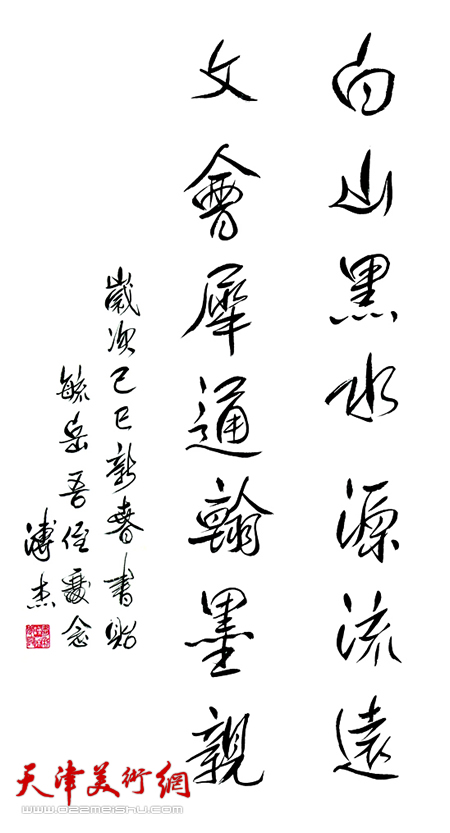 白山黑水源流遠
文會犀通翰墨親
歲次己巳新春書貽
毓岳吾侄爱念
溥杰
天津美術網
www.022meishu.com